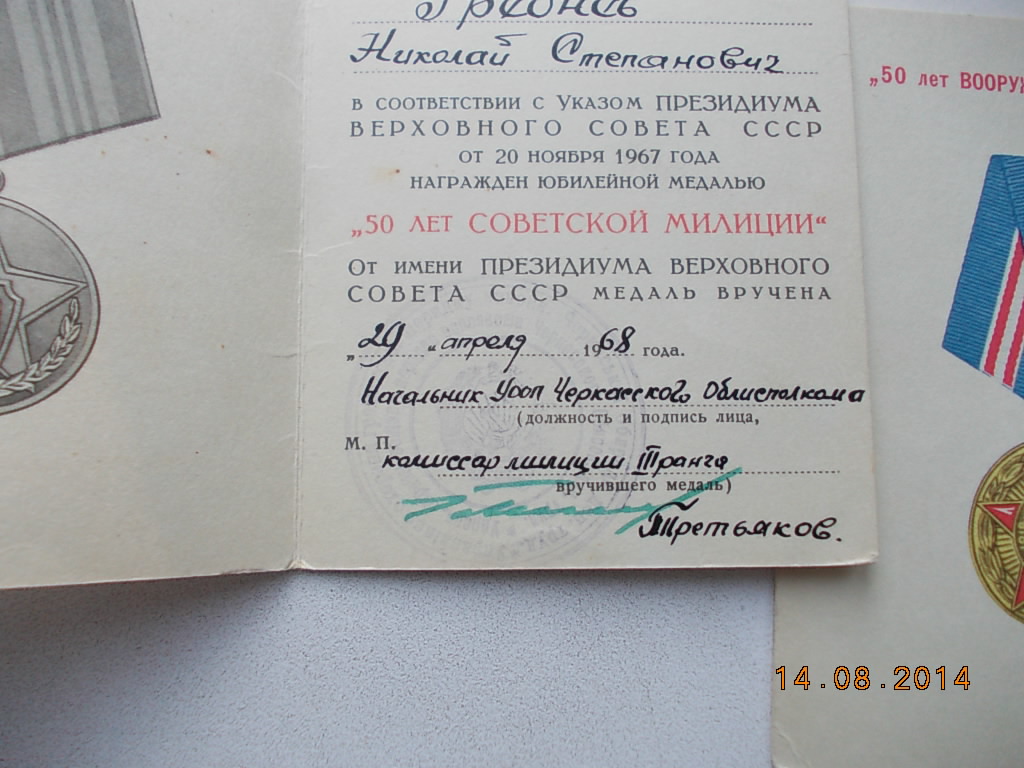 Николай Степанович
в соответствии с Указом ПРЕЗИДИУМА
ВЕРХОВНОГО СОВЕТА СССР
от 20 ноября 1967 года
награжден юбилейной медалью
„50 лет СОВЕТСКОЙ МИЛИЦИИ“
От имени ПРЕЗИДИУМА ВЕРХОВНОГО
СОВЕТА СССР медаль вручена
„29 “ апреля 1968 года.
Начальник Уооп Черкасского Облисполкома
(должность и подпись лица,
М. П.
комиссар милиции III ранга
вручившего медаль)
Третьяков.
„50 лет ВООРУ
14.08.2014